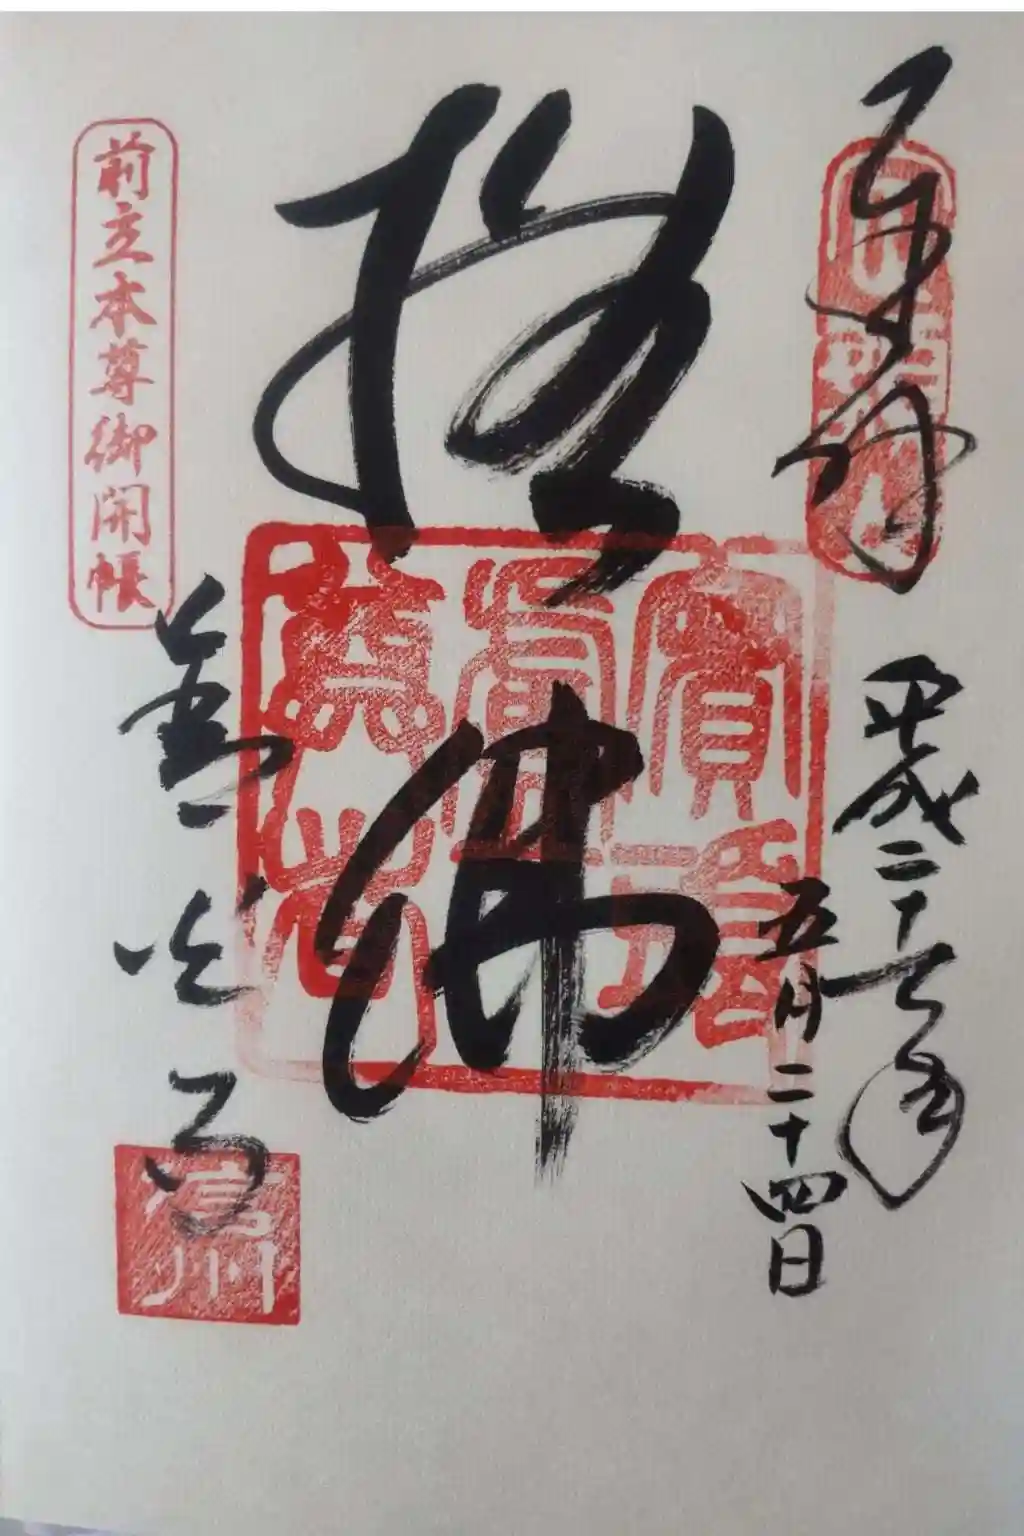 奉拝
平成二十七年
五月二十四日
撫佛
賓頭盧尊者
前立本尊御開帳
善光寺
信州